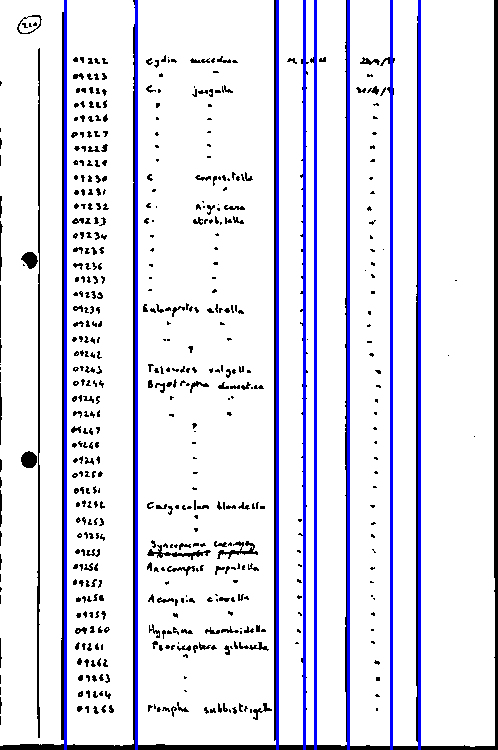 220
09222 Cydia succedana
09223 " "
09224 C. jungiella
09225 " "
09226 " "
09227 " "
09228 " "
09229 " "
09230 C. compositella
09231 " "
09232 C. nigricana
09233 C. atrobilella
09234 " "
09235 " "
09236 " "
09237 " "
09238 " "
09239 Eulamprotes atrella
09240 " "
09241 " "
09242 ?
09243 Teleiodes vulgella
09244 Bryotropha domestica
09245 " "
09246 " "
09247 ?
09248 "
09249 "
09250 "
09251 "
09252 Caryocolum blandella
09253 "
09254 "
09255
09256 Anacampsis populella
09257 " "
09258 Acompsia cinerella
09259 " "
09260 Hypatima rhomboidella
09261 Psoricoptera gibbosella
09262 "
09263 "
09264 "
09265 Mompha subbistrigella